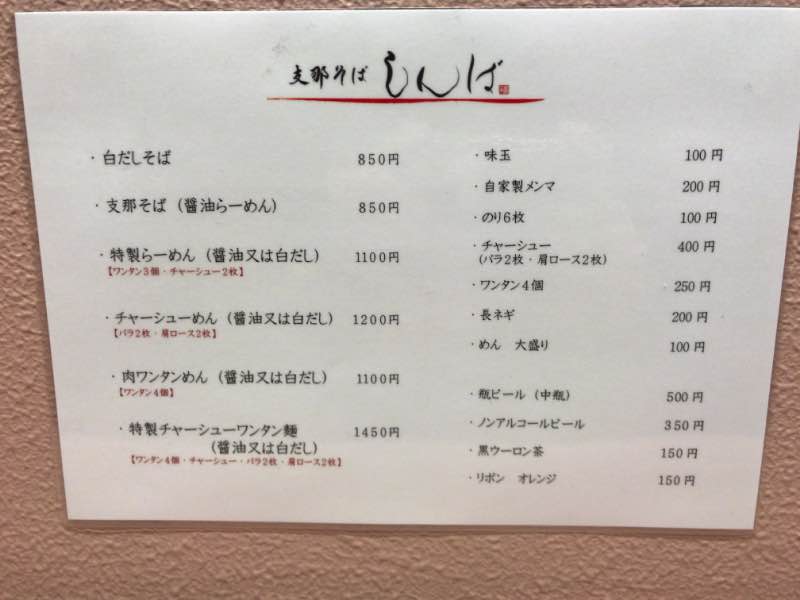 支那そば しんば
・白だしそば 850円
・支那そば（醤油らーめん） 850円
・特製らーめん（醤油又は白だし） 1100円
【ワンタン3個・チャーシュー2枚】
・チャーシューめん（醤油又は白だし） 1200円
【バラ2枚・肩ロース2枚】
・肉ワンタンめん（醤油又は白だし） 1100円
【ワンタン4個】
・特製チャーシューワンタン麺 1450円
（醤油又は白だし）
【ワンタン4個・チャーシュー・バラ2枚・肩ロース2枚】
・味玉 100円
・自家製メンマ 200円
・のり6枚 100円
・チャーシュー 400円
(バラ2枚・肩ロース2枚)
・ワンタン4個 250円
・長ネギ 200円
・めん 大盛り 100円
・瓶ビール（中瓶） 500円
・ノンアルコールビール 350円
・黒ウーロン茶 150円
・リボン オレンジ 150円